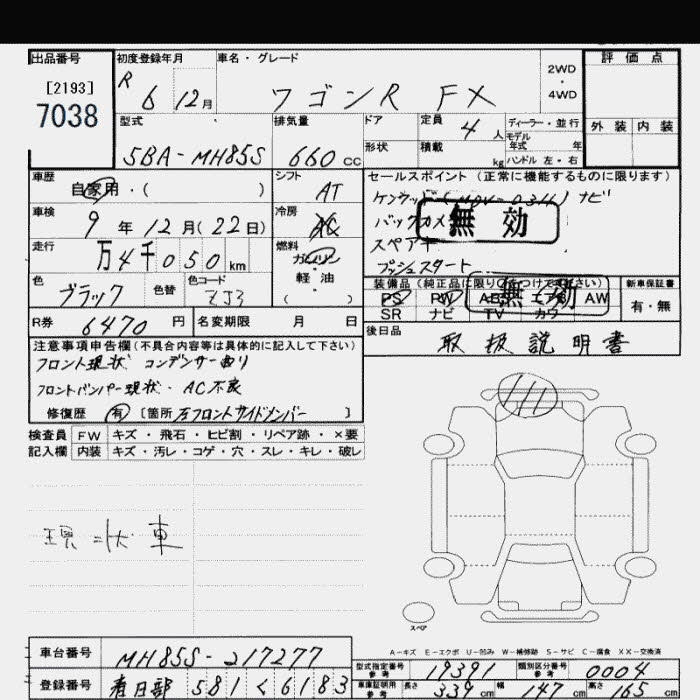 出品番号
[2193]
7038
初度登録年月
R 6 12月
車名・グレード
ワゴンR FX
2WD
・
4WD
評価点
外装 内装
型式
5BA-MH85S
排気量
660cc
ドア
定員 4人
形状
積載 kg
ディーラー・並行
モデル年式 年
ハンドル 左・右
車歴
自家用・( )
シフト
AT
セールスポイント(正常に機能するものに限ります)
ナビ
スペアキー
プッシュスタート
無効
車検
9年12月(22日)
冷房
AC
走行
万4千050km
燃料
ガソリン
軽・油
( )
色
ブラック
色替
色コード
ZJ3
装備品
無効
PS PW AB エアB AW
SR ナビ TV カワ
新車保証書
有・無
R券
6470円
名変期限 月 日
後日品
取扱説明書
注意事項申告欄(不具合内容等は具体的に記入して下さい)
フロント現状 コンデンサー曲り
フロントバンパー現状・AC不良
修復歴 有 [箇所 左フロントサイドメンバー ]
検査員記入欄
FW キズ・飛石・ヒビ割・リペア跡・×要
内装 キズ・汚レ・コゲ・穴・スレ・キレ・破レ
現状車
スペア
A-キズ E-エクボ U-凹み W-補修跡 S-サビ C-腐食 XX-交換済
車台番号
MH85S-217277
型式指定番号 参考
19391
類別区分番号 参考
0004
登録番号
春日部 581 く 6183
車庫証明用 参考
長さ 339cm 幅 147cm 高さ 165cm